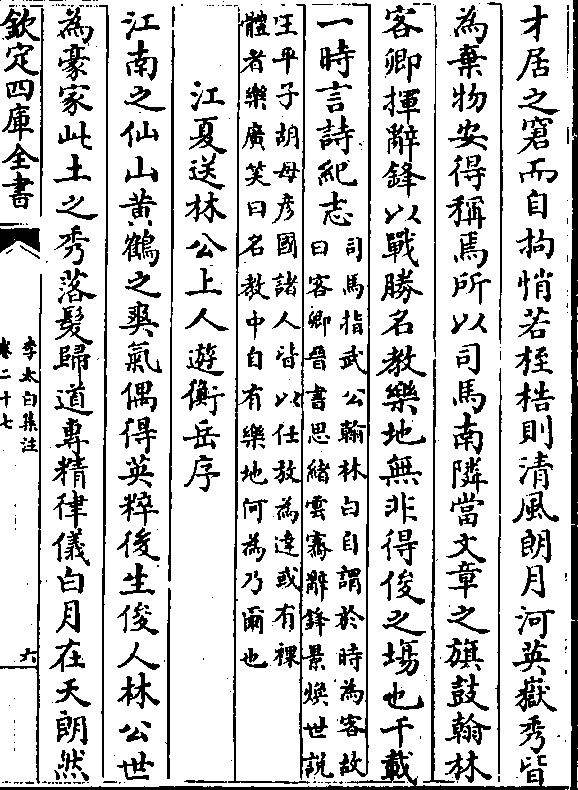 才居之窘而自拘悄若桎梏則清風朗月河英嶽秀皆
為棄物安得稱焉所以司馬南隣當文章之旗鼓翰林
客卿揮辭鋒以戰勝名教樂地無非得俊之塲也千載
一時言詩紀志
司馬指武公翰林白自謂於時為客故
曰客卿晉書思緒雲騫辭鋒景煥世說
王平子胡母彦國諸人皆以任放為達或有裸
體者樂廣笑曰名教中自有樂地何為乃爾也
江夏送林公上人遊衡岳序
江南之仙山黃鶴之爽氣偶得英粹後生俊人林公世
為豪家此土之秀落髮歸道專精律儀白月在天朗然
欽定四庫全書
李太白集注
卷二十七
六